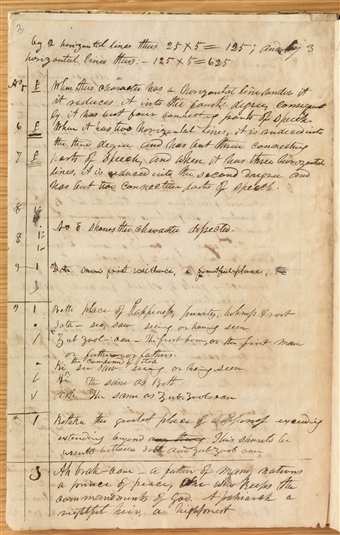 by 2 horizontal lines thus 25 x 5 = 125; and by 3
horizontal lines thus: - 125 x 5 = 625
No 5 When this character has a horizontal line under it
it reduces it into the fourth degree, consequently
it has but four connecting parts of speech.
6 When it has two horizontal lines, it is reduced into
the third degree and has but three connecting
7 parts of speech, and when it has three horizontal
lines, it is reduced into the second degree and
has but two connective parts of speech.
8
8 No 8 shows the character dissected.
9 residence, a fruitful place,
9 Beth place of happiness, purity, holiness & rest
Iota - see, saw seeing or having seen
Zub Zool-oan - The first born, or the first man
or fathers or fathers
see saw seeing or having seen
The same as Beth
The same as Zub Zool oan
the greatest place of happiness exceeding
extending beyond This should be
Beth and Zub Zool oan
Ah brah-oam - a father of many nations
a prince of peace, one who keeps the
commandments of God. A patriarch a
rightful heir, a highpriest